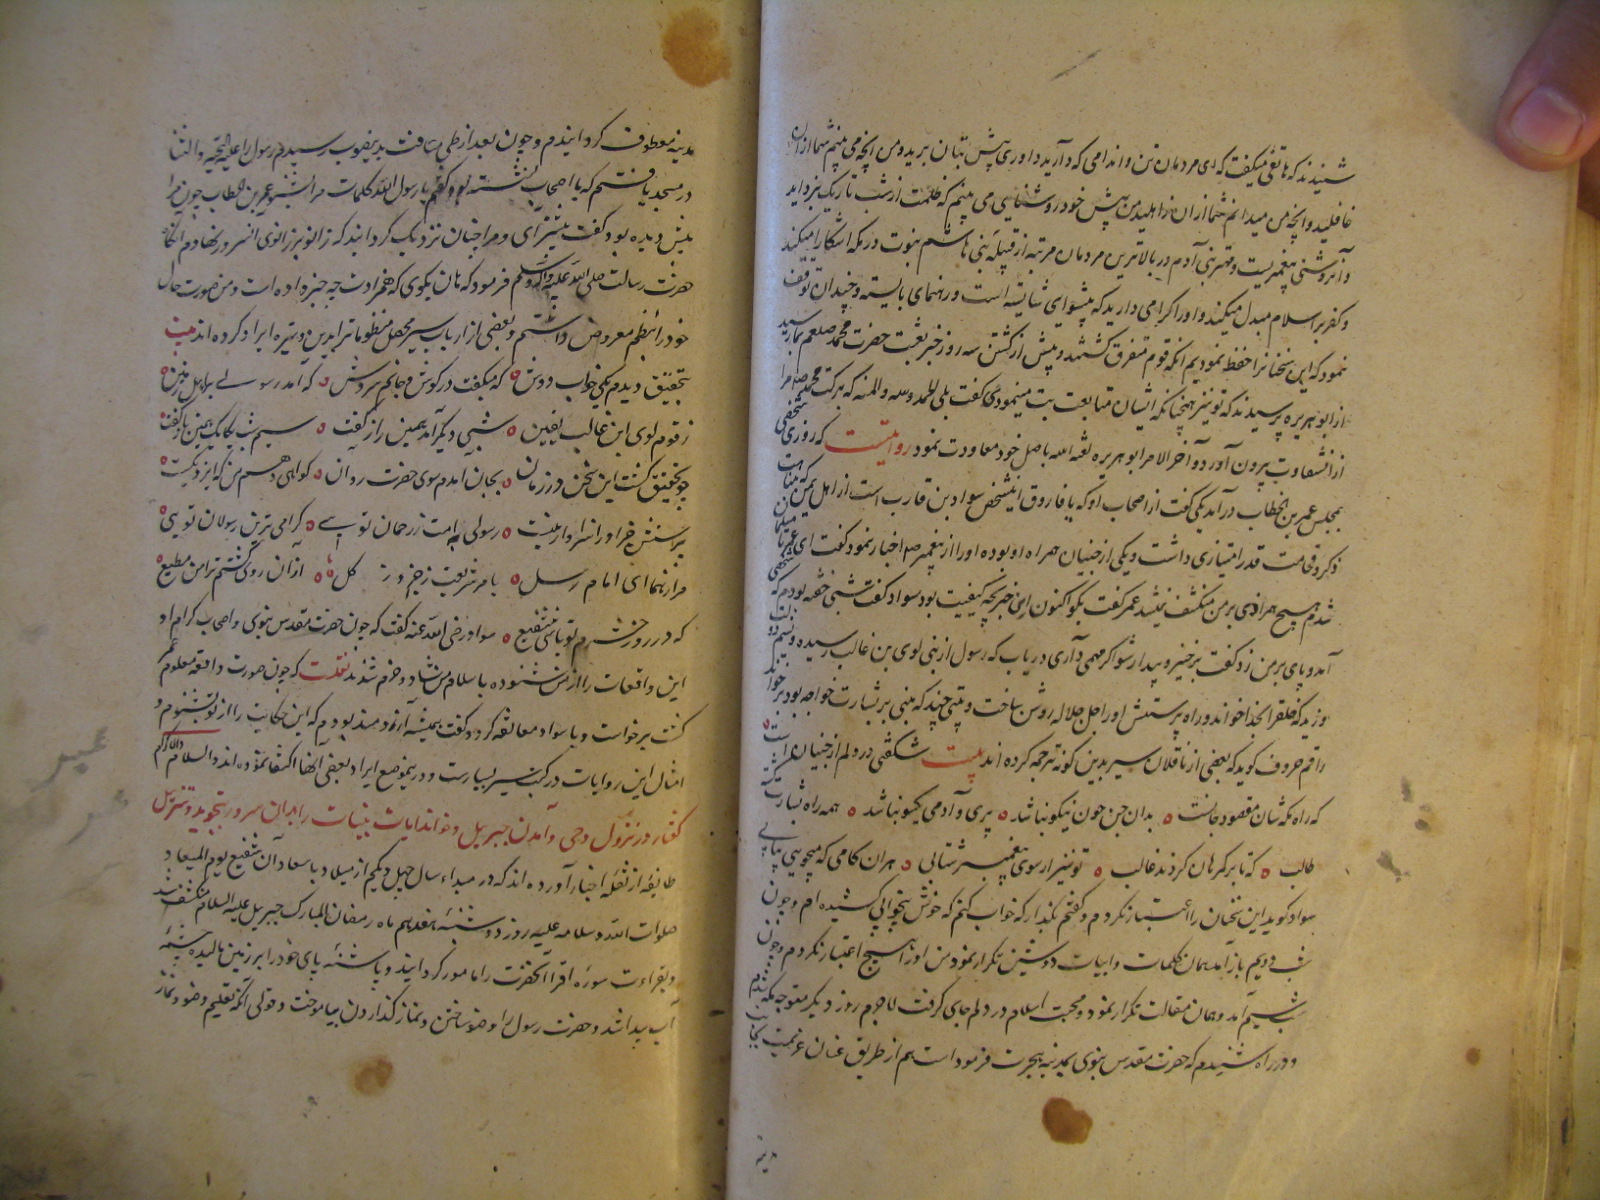 شنیدند که هاتفی میگفت که ای مردمان تن و اندامی که دارید داوری پیش بتان برید و من آنچه می بینم شما از آن
غافلید و آنچه من میدانم شما از آن ذاهلید من پیش خود روشنایی می بینم که ظلمت از شب تاریک بزداید
و آن روشنی پیغمبریست و مهتر بنی آدم در بالاترین مردمان مرتبه از قبیله بنی هاشم نبوت در مکه آشکارا میکند
و کفر بر اسلام مبدل میکند و او را گرامی دارید که پیشوای شایسته است و رهنمای بایسته و چندان توقف
نمود که این سخنانرا حفظ نمودیم آنگه قوم متفرق گشتند و پیش از گذشتن سه روز خبر بعثت حضرت محمد صلعم بما رسید
از ابو هریره پرسیدند که تو نیز همچنانکه ایشان متابعت بت مینمودی گفت بلی الحمد لله والمنه که برکت محمد صلعم مرا
از آن شقاوت بیرون آورد و آخر الامر ابو هریره لعنه الله باصل خود معاودت نمود روایتست که روزی شخصی
بمجلس عمر بن الخطاب درآمد یکی گفت از اصحاب او که یا فاروق اینشخص سواد بن قارب است از اهل یمن که
ذکر وقامت قدر امتیازی داشت و یکی از جنیان همراه او بوده او را از پیغمبر صلعم اخبار نمود گفت ای
شدم هیچ همراهی بر من منکشف نیشد عمر گفت بگو اکنون این خبر بچه کیفیت بود سواد گفت شبی خفته بودم که
آمد و پای بر من زد گفت برخیز و بیدار شو اگر فهمی داری دریاب که رسول از بنی لوی بن غالب رسیده و نسیم
وزید که خلق را بخدا خواند و راه پرستش او را جل جلاله روشن ساخت و بیتی چند که مبنی بر بشارت خواجه بود برخواند
راقم حروف گوید که بعضی از ناقلان سیر بدین گونه ترجمه کرده اند بیت شگفتی در دلم از جنیان است
که راه مکه شان مقصود جانست ه بدان جن چون نیکو نباشد ه پری و آدمی یکسو نباشد ه همه راه بشارت گشت
طالب ه که تا بر گمرهان گردند غالب ه تو نیز از سوی پیغمبر شتابی ه هر آن کامی که میجویی بیابی
سواد گوید این سخنان را اعتبار نکردم و گفتم بگذار که خواب کنم که خوش بیخوابی کشیده ام و چون
شب دویم باز آمد همان کلمات و ابیات دوشین تکرار نمود من او را هیچ اعتبار نکردم و چون
شب سیم آمد و همان مقالت تکرار نمود و محبت اسلام در دلم جای گرفت لاجرم روز دیگر متوجه مکه شدم
و در راه شنیدم که حضرت مقدس نبوی بمدینه هجرت فرموده است هم از طریق عنان عزیمت بجانب
مدینه
مدینه معطوف گردانیدم و چون بعد از طی مسافت بدینصوب رسیدم رسول را علیه التحیه والثنا
در مسجد یافتم که با اصحاب نشسته بود گفتم یا رسول الله کلمات مرا بشنو عمر بن الخطاب چون مرا
پیش دیده بود گفت پیشتر آی و مرا چنان نزدیک گردانید که زانو بر زانوی آنسرور نهادم آنگاه
حضرت رسالت صلی الله علیه وآله وسلم فرمود که هان بگوی که همزادت چه خبر داده است و من صورت حال
خود را بنظم معروض داشتم و بعضی از ارباب سیر محصل منظومات را بدین وتیره ایراد کرده اند بیت
بتحقیق دیدم یکی خواب دوش ه که میگفت در گوش و جانم سروش ه که آمد رسولی براه یقین ه
ز قوم لوی ابن غالب یقین ه شبی دیگر آمد همین راز گفت ه سیم شب بکایک همین باز گفت ه
چو تحقیق گشت این سخن در زمان ه بجان آمدم سوی حضرت روان ه گواهی دهم من که ایزد یکیست ه
پرستش جز او را سزاوار نیست ه رسولی به امت ز رحمان تویی ه گرامی ترین رسولان تویی ه
مرا رهنما ای امام رسل ه بامر شریعت ز جزو و ز کل ه از آن روی گشتم ترا من مطیع ه
که در روز حشرم تو باشی شفیع ه سواد رضی الله عنه گفت که چون حضرت مقدس نبوی و اصحاب کرام او
این واقعات را از من شنوده باسلام من شاد و خرم شدند نقلست که چون صورت واقعه معلوم عمر
گشت برخواست و با سواد معانقه کرد و گفت همیشه آرزومند بودم که این حکایت را از تو بشنوم و
امثال این روایات در کتب سیر بسیارست و درینموضع ایراد بعضی آنها اکتفا نموده اند والسلام والاکرام
گفتار در نزول وحی و آمدن جبریل و خواندن آیات بینات را بدان سرور بتجوید و ترتیل
طایفه از نقله اخبار آورده اند که در مبداء سال چهل و یکم از میلاد با سعاد آن شفیع یوم المیعاد
صلوات الله و سلامه علیه روز دوشنبه هفدهم ماه رمضان المبارک جبریل علیه السلام منکشف شد
و بقراءت سوره اقرا آنحضرت را مامور گردانید و پاشنه پای خود را بر زمین مالیده چشمه
آب پیدا شد و حضرت رسول را وضو ساختن و نماز گذاردن بیاموخت و قولی آنکه تعلیم وضو و نماز